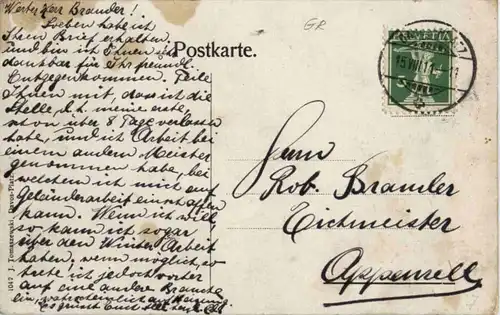 Werter Herr Brander!
Soeben habe ich
Ihren Brief erhalten,
und bin ich Ihnen sehr
dankbar für Ihr freundl.
Entgegenkommen. Teile
Ihnen mit, dass ich die
Stelle, d. h. meine erste,
schon über 8 Tage verlassen
habe, und ich Arbeit bei
einem andern Meister
genommen habe, bei
welchem ich mich auf
Geländerarbeit einschaffen
kann. Wenn ich will,
so kann ich sogar
über den Winter Arbeit
haben, wenn möglich, so
trete ich jedoch vorher
auf eine andere Branche
ein, wahrscheinlich auf
Es grüsst Euch
Postkarte.
GR
HELVETIA
5
15.VIII.11
Herrn
Rob. Brander
Eichmeister
Appenzell
1047 J. Tomaszewski, Davos-Platz